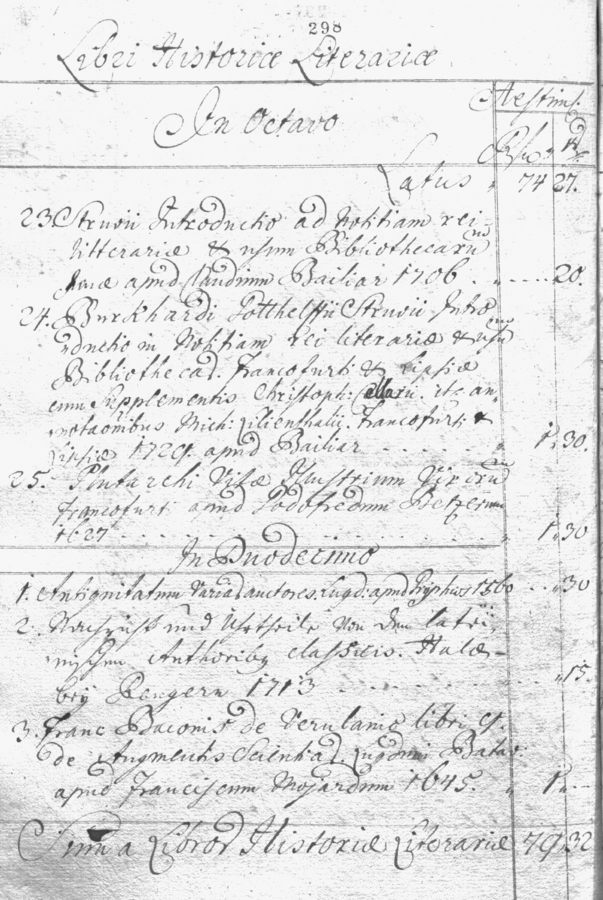 298
Libri Historiæ Literariæ
Aestim.
In Octavo
Latus 74 27.
23. Struvii Introductio ad Notitiam rei
litterariæ & usum Bibliothecarum
Jenæ apud Claudium Bailiar 1706 . . . . . 20.
24. Burkhardi Gotthelffii Struvii Intro
ductio in Notitiam rei literariæ & usum
Bibliothecar. Francofurti & Lipsiæ
cum Supplementis Christoph: Cellarii. etc an
notaonibus Mich: Lilienthalii. Francofurti &
Lipsiæ 1729. apud Bailiar . . . . . 1. 30.
25. Plutarchi Vitæ Illustrium Virorum
Francofurt apud Godofredum
1627 . . . . . 1. 30
In Duodecimo
1. Antiquitatum Variar. auctores. Lugd: apud Gryphius 1560 . . . 30
2. Nachricht und Urtheile von den latei-
nischen Authoribus classicis. Halæ
bey Rengern 1713 . . . . . 15.
3. Franc Baconis de Verulamio libri 9.
de Augmentis Scientiar. Lugduni Batav:
apud Franciscum Mojardum 1645. 1. . .
Summa Libror Historiæ Literariæ 79. 32